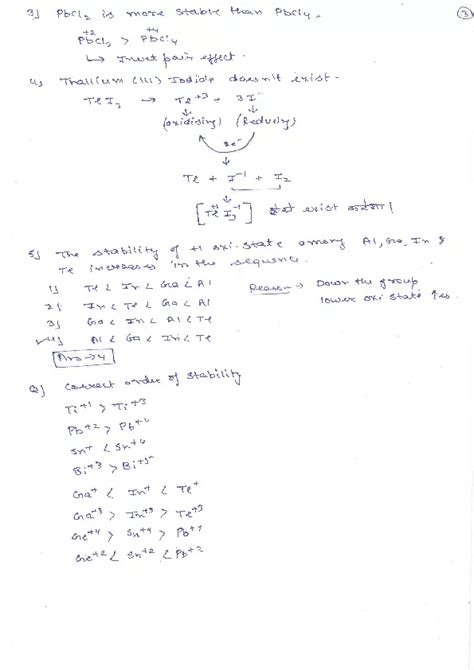 3
3) PbCl2 is more stable than PbCl4.
+2 +4
PbCl2 > PbCl4
↳ Inert pair effect.
4) Thallium (III) Iodide doesn't exist.
TlI3 → Tl+3 + 3I-
(oxidising) (Reducing)
2e-
Tl + I-1 + I2
[Tl+1 I3-1] exist करेगा।
5) The stability of +1 oxi-state among Al, Ga, In &
Tl increases in the sequence.
1) Tl < In < Ga < Al
Reason → Down the group
2) In < Tl < Ga < Al
lower oxi state ↑es.
3) Ga < In < Al < Tl
4) Al < Ga < In < Tl
Ans → 4
Q) Correct order of stability
Ti+1 > Ti+3
Pb+2 > Pb+4
Bi+3 > Bi+5
Ga+ < In+ < Tl+
Ga+3 > In+3 > Tl+3
Ge+4 > Sn+4 > Pb+4
Ge+2 < Sn+2 < Pb+2